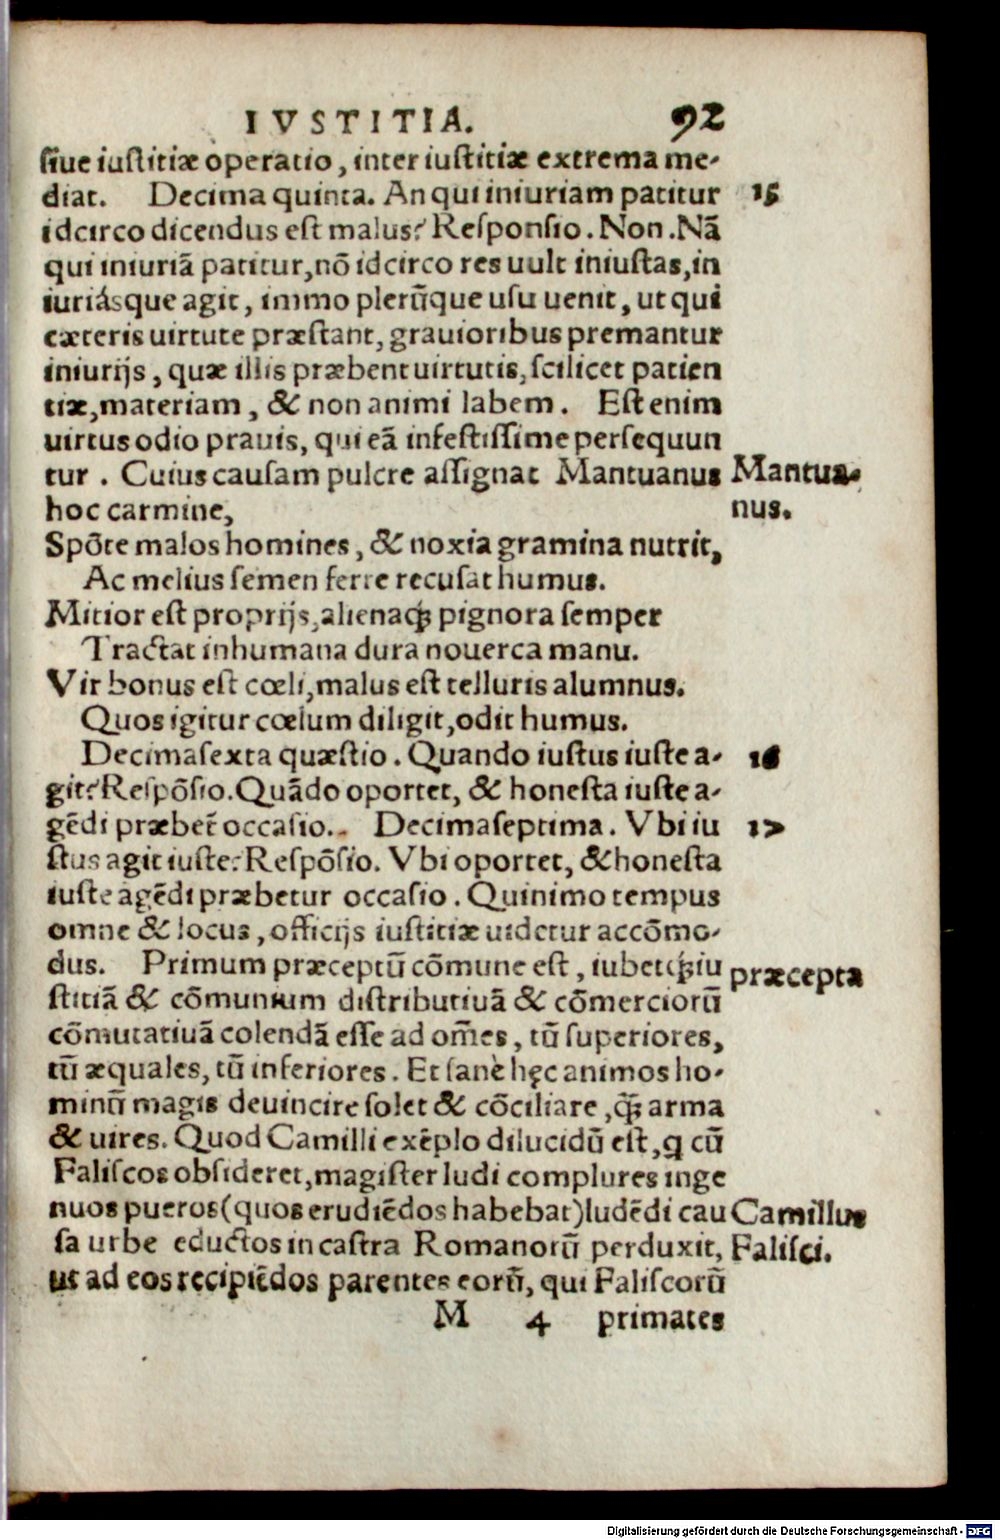 IVSTITIA. 92
ſiue iuſtitiæ operatio, inter iuſtitiæ extrema me-
diat. Decima quinta. An qui iniuriam patitur 15
idcirco dicendus eſt malus? Reſponſio. Non. Nā
qui iniuriā patitur, nō idcirco res uult iniuſtas, in
iuriásque agit, immo plerūque uſu uenit, ut qui
cæteris uirtute præſtant, grauioribus premantur
iniurijs, quæ illis præbent uirtutis, ſcilicet patien
tiæ, materiam, & non animi labem. Eſt enim
uirtus odio prauis, qui eā infeſtiſſime perſequun
tur. Cuius cauſam pulcre aſſignat Mantuanus Mantua-
hoc carmine, nus.
Spōte malos homines, & noxia gramina nutrit,
Ac melius ſemen ferre recuſat humus.
Mitior eſt proprijs, alienaq; pignora ſemper
Tractat inhumana dura nouerca manu.
Vir bonus eſt cœli, malus eſt telluris alumnus.
Quos igitur cœlum diligit, odit humus.
Decimaſexta quæſtio. Quando iuſtus iuſte a- 16
git? Reſpōſio. Quādo oportet, & honeſta iuſte a-
gēdi præbet̄ occaſio. Decimaſeptima. Vbi iu 17
ſtus agit iuſte? Reſpōſio. Vbi oportet, & honeſta
iuſte agēdi præbetur occaſio. Quinimo tempus
omne & locus, officijs iuſtitiæ uidetur accōmo-
dus. Primum præceptū cōmune eſt, iubetq; iu præcepta
ſtitiā & cōmunium diſtributiuā & cōmerciorū
cōmutatiuā colendā eſſe ad om̄es, tū ſuperiores,
tū æquales, tū inferiores. Et ſanè hęc animos ho-
minū magis deuincire ſolet & cōciliare, q̄ arma
& uires. Quod Camilli exēplo dilucidū eſt, ꝗ cū
Faliſcos obſideret, magiſter ludi complures inge
nuos pueros (quos erudiēdos habebat) ludēdi cau Camillus
ſa urbe eductos in caſtra Romanorū perduxit, Faliſci.
ut ad eos recipiēdos parentes eorū, qui Faliſcorū
M 4 primates
Digitalisierung gefördert durch die Deutsche Forschungsgemeinschaft - DFG